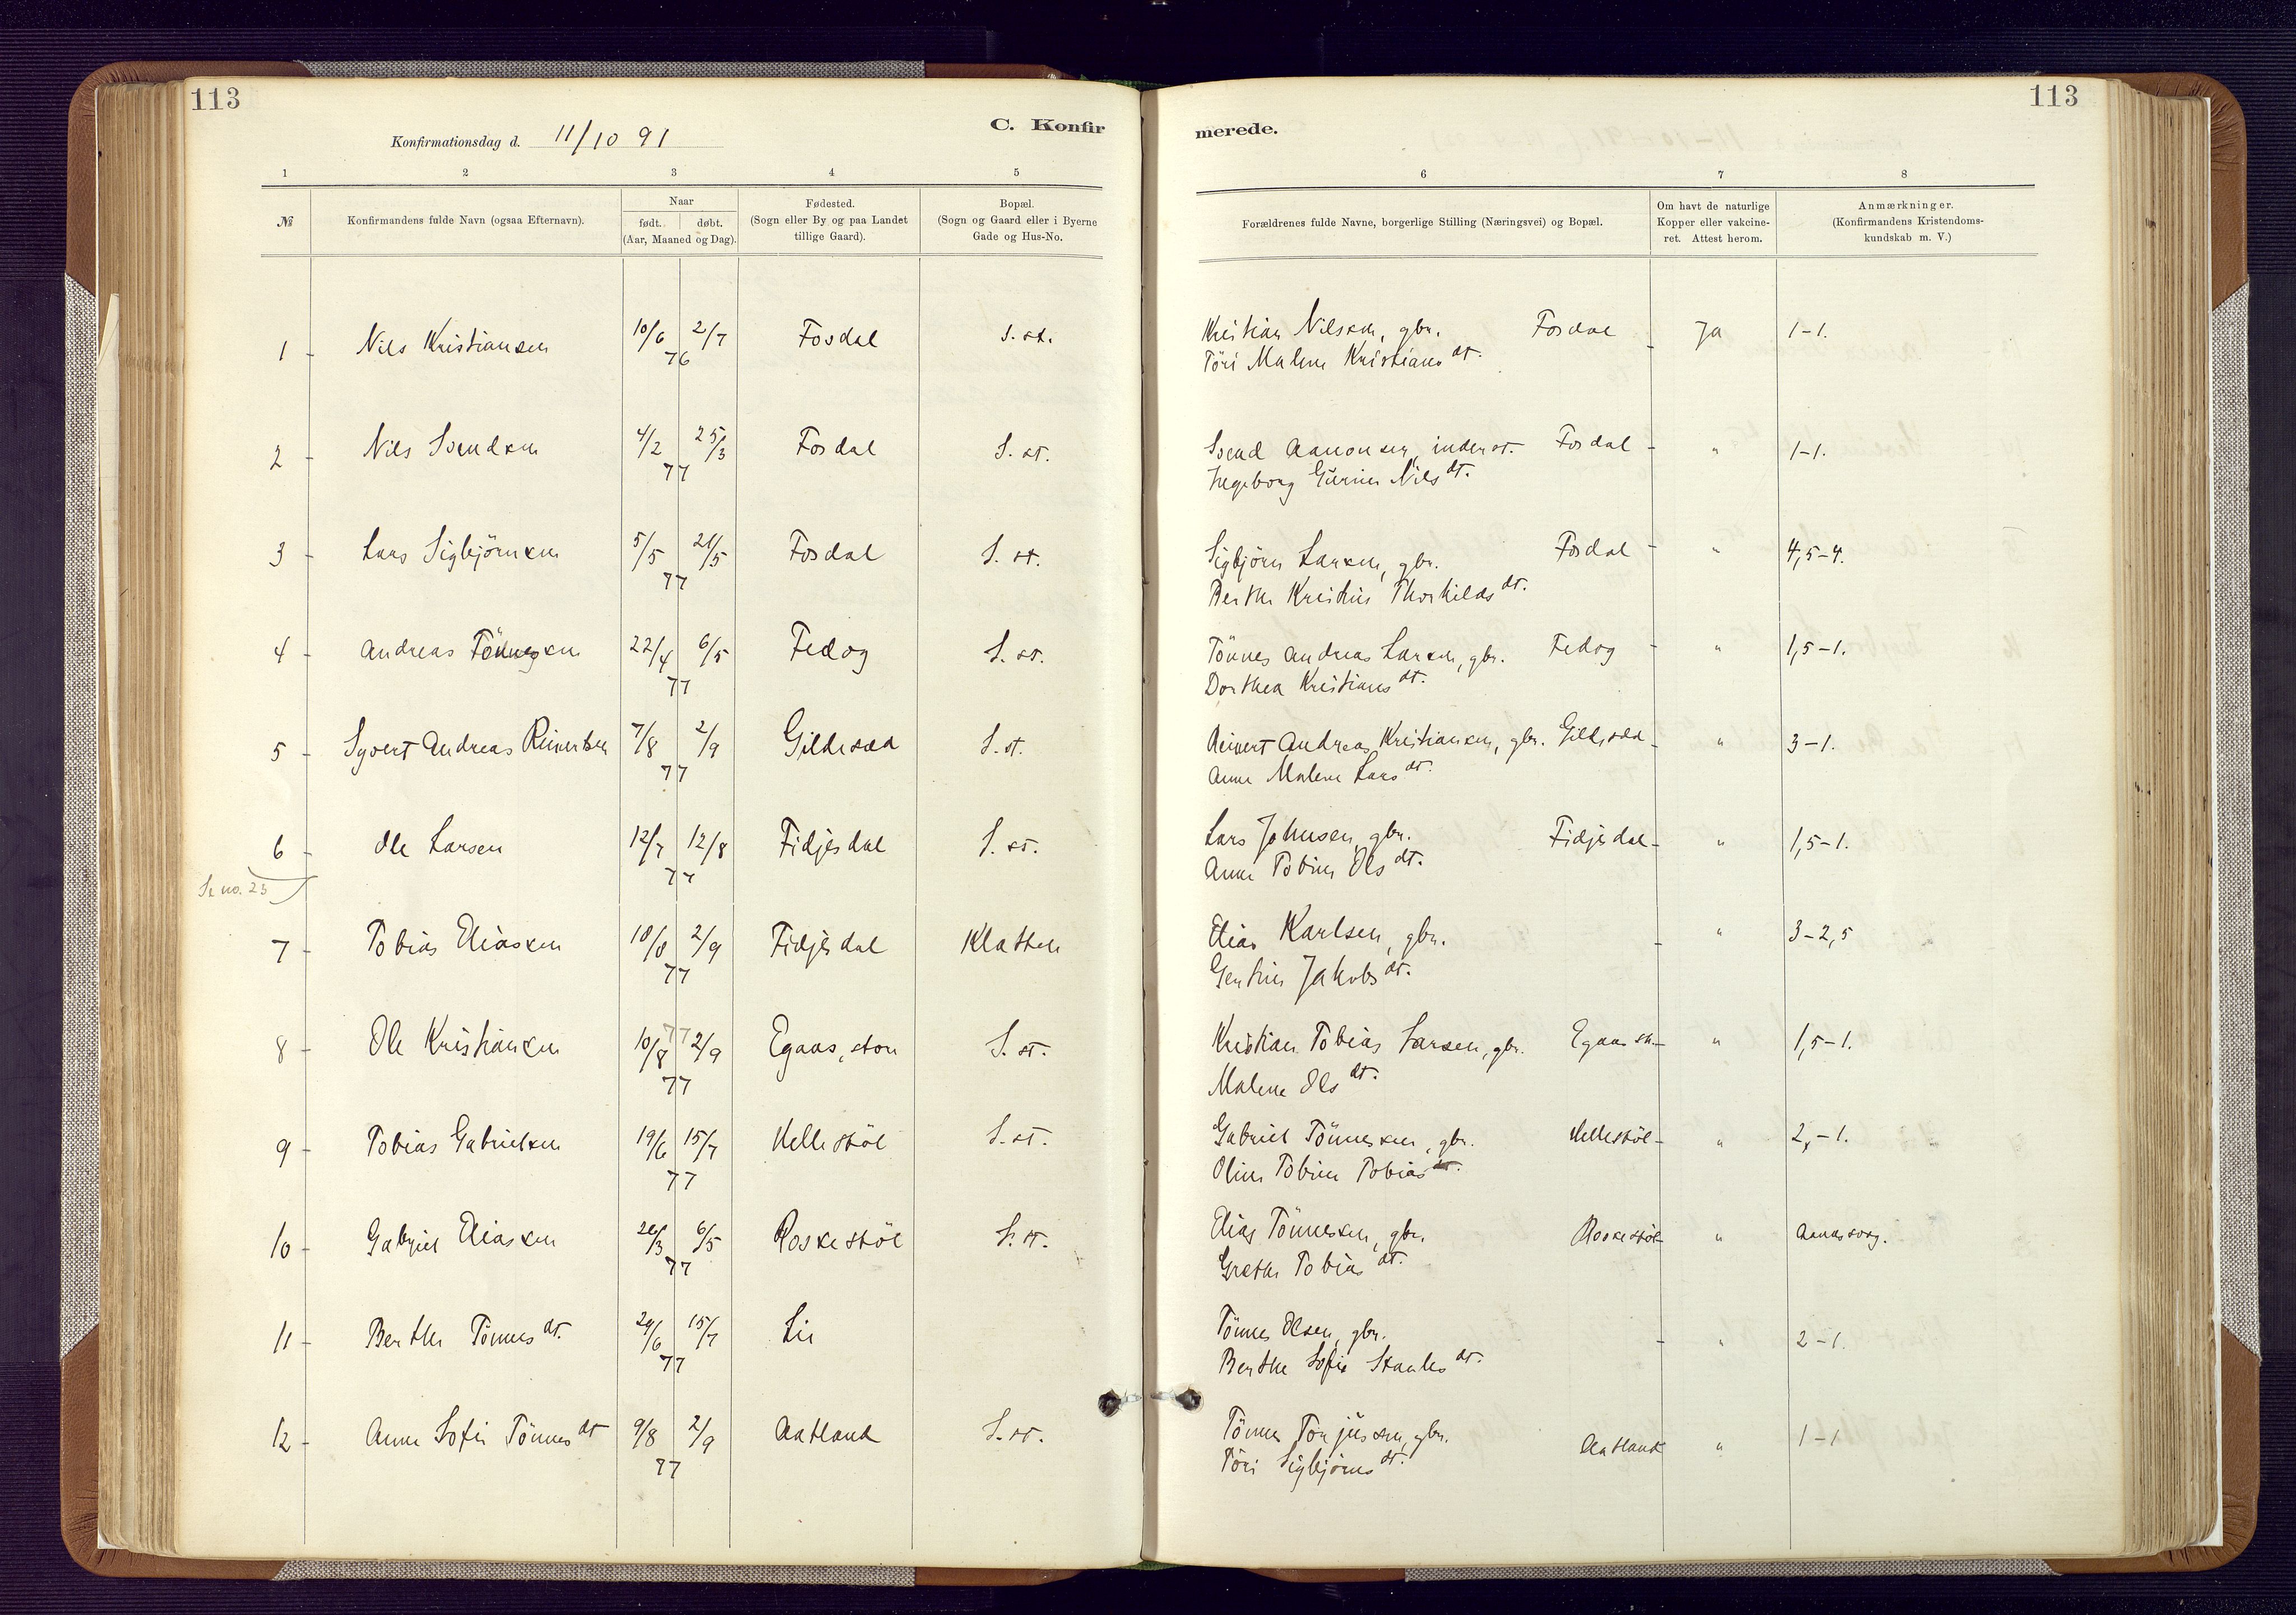 113
Konfirmationsdag d. 11/10 91
C. Konfir
1 2 3 4 5
№ Konfirmandens fulde Navn (ogsaa Efternavn). Naar født. døbt. (Aar, Maaned og Dag). Fødested. (Sogn eller By og paa Landet tillige Gaard). Bopæl. (Sogn og Gaard eller i Byerne Gade og Hus-No.
1 - Nils Kristiansen 10/6 2/7 76 Fosdal S. st.
2 - Nils Svendsen 4/2 25/3 77 Fosdal S. st.
3 - Lars Sigbjörnsen 5/5 21/5 77 Fosdal S. st.
4 - Andreas Tönnesen 22/4 6/5 77 Fedog S. st.
5 - Syvert Andreas Reinertsen 7/8 2/9 77 S. st.
6 - Ole Larsen 12/7 12/8 77 Fidjesdal S. st.
Se no. 23
7 - Tobias Eliassen 2/9 77 Fidjesdal Klatten
8 - Ole Kristiansen 10/8 2/9 77 Egaas, stor S. st.
9 - Tobias Gabrielsen 19/6 15/7 77 Hellestöl S. st.
10 - Gabriel Eliassen 6/5 77 Roskestöl S. st.
11 - Berthe Tönnes dt. 24/6 15/7 77 Lie
12 - Anne Sofie Tönnes dt 9/8 2/9 77 Aatland S. st.
113
merede.
6 7 8
Forældrenes fulde Navne, borgerlige Stilling (Næringsvei) og Bopæl. Om havt de naturlige Kopper eller vakcineret. Attest herom. Anmærkninger. (Konfirmandens Kristendomskundskab m. V.)
Kristian Nilsen, gbr. Fosdal - Ja 1-1.
Töri Malene Kristians dt.
Svend Aanonsen, inderst. Fosdal - " 1-1.
Ingeborg Gurine Nils dt.
Sigbjörn Larsen, gbr. Fosdal - " 4,5-4.
Berthe Kristine Thorkilds dt.
Tönnes Andreas Larsen, gbr. Fedog - " 1,5-1.
Dorthea Kristians dt.
Reinert Andreas Kristiansen, gbr. - " 3-1.
Anne Malene Lars dt.
Lars Johnsen, gbr. Fidjesdal - " 1,5-1.
Anne Tobine Ols dt.
Elias Karlsen, gbr. - " 3-2,5
Gentine Jakobs dt.
Kristian Tobias Larsen, gbr. Egaas st. - " 1,5-1.
Malene Ols dt.
Gabriel Tönnesen, gbr. Hellestöl - " 2,-1.
Oline Tobine Tobias dt.
Elias Tönnesen, gbr. Roskestöl - " Aandssvag.
Grethe Tobias dt.
Tönnes Olsen, gbr. - " 2-1.
Berthe Sofie Staales dt.
Tönnes Tonjussen, gbr. Aatland " 1-1
Töri Sigbjörns dt.